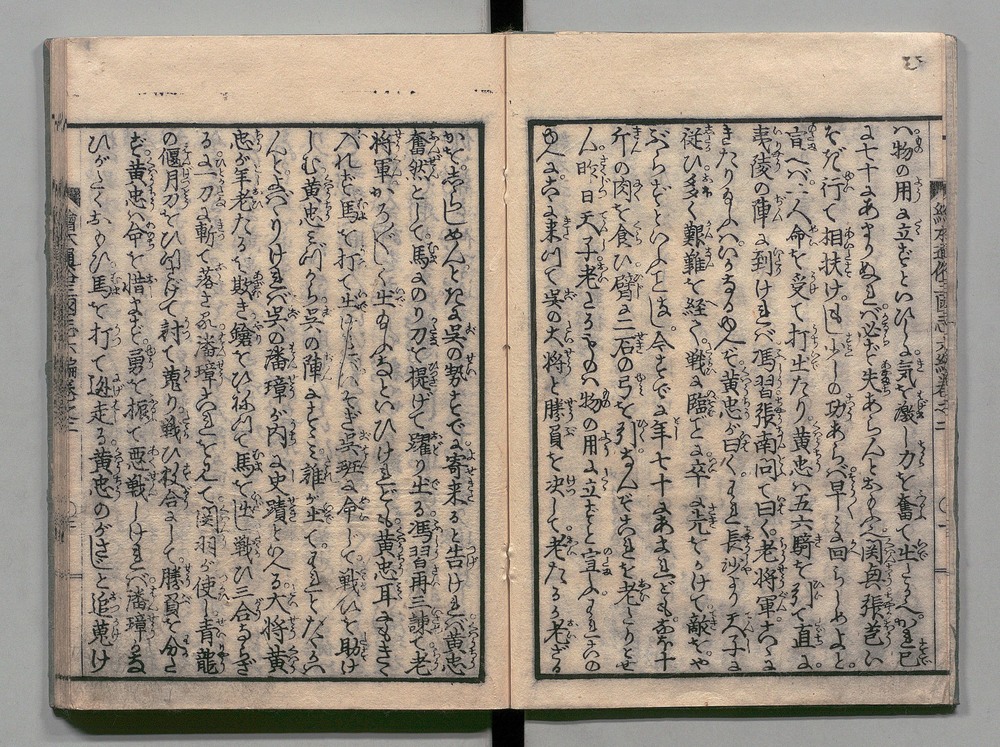 ハ物の用に立ずといひしに気を激し力を奮て出たるへ。かれ已
に七十にあまりぬれバ必ず失あらんとおもふへ。関興張苞い
そだ行て相扶けよ。少しの功あらバ早々に回らしめよと
宣へバ。二人命を受て打出たり。黄忠ハ五六騎を引て直に
夷陵の陣に到けれバ。馮習張南問て曰く。老将軍こゝに
きたり給ふハいかなるゆへぞ。黄忠が曰く。われ長沙より天子に
従ひ。多く艱難を経く。戦に臨ミて卒に先をかけて敵をや
ぶらずといふことなし。今すでに年七十にあまれども。なを十
斤の肉を食ひ。臂に二石の弓を引。なんぞこれを老たりとせ
ん。昨日天子老たるものハ物の用に立ずと宣ふ。われこの
ゆへにこゝに来りて。呉の大将と勝負を決して。老たるか老ざる
かを。しらしめんとたに。呉の勢すでに寄来ると告けれバ。黄忠
奮然として馬にのり。刀を提げて躍り出る。馮習再三諫て。老
将軍かろ〴〵しく出給ふなといひけれども。黄忠耳にもきく
入れず。馬を打て出
いそぎ呉班に命じて。戦ひを助け
しむ。黄忠ミづから呉の陣にすゝミ。誰か出てわれとたゝかハ
んとよバハりけれバ。呉の潘璋が内に史蹟といへる大将。黄
忠が年老たるを欺き。鎗をひねつて馬を出し。戦ひ三合ならざ
るに一刀に斬て落さる。潘璋これをミて。関羽が使し青龍
の偃月刀をひつさげて討て蒐り。戦ひ数合にして勝負を分た
ず。黄忠ハ命を惜まず。勇を振て悪戦しけれバ。潘璋かな
ひがたくおもひ。馬を打て逃走る。黄忠のがさじと追蒐け